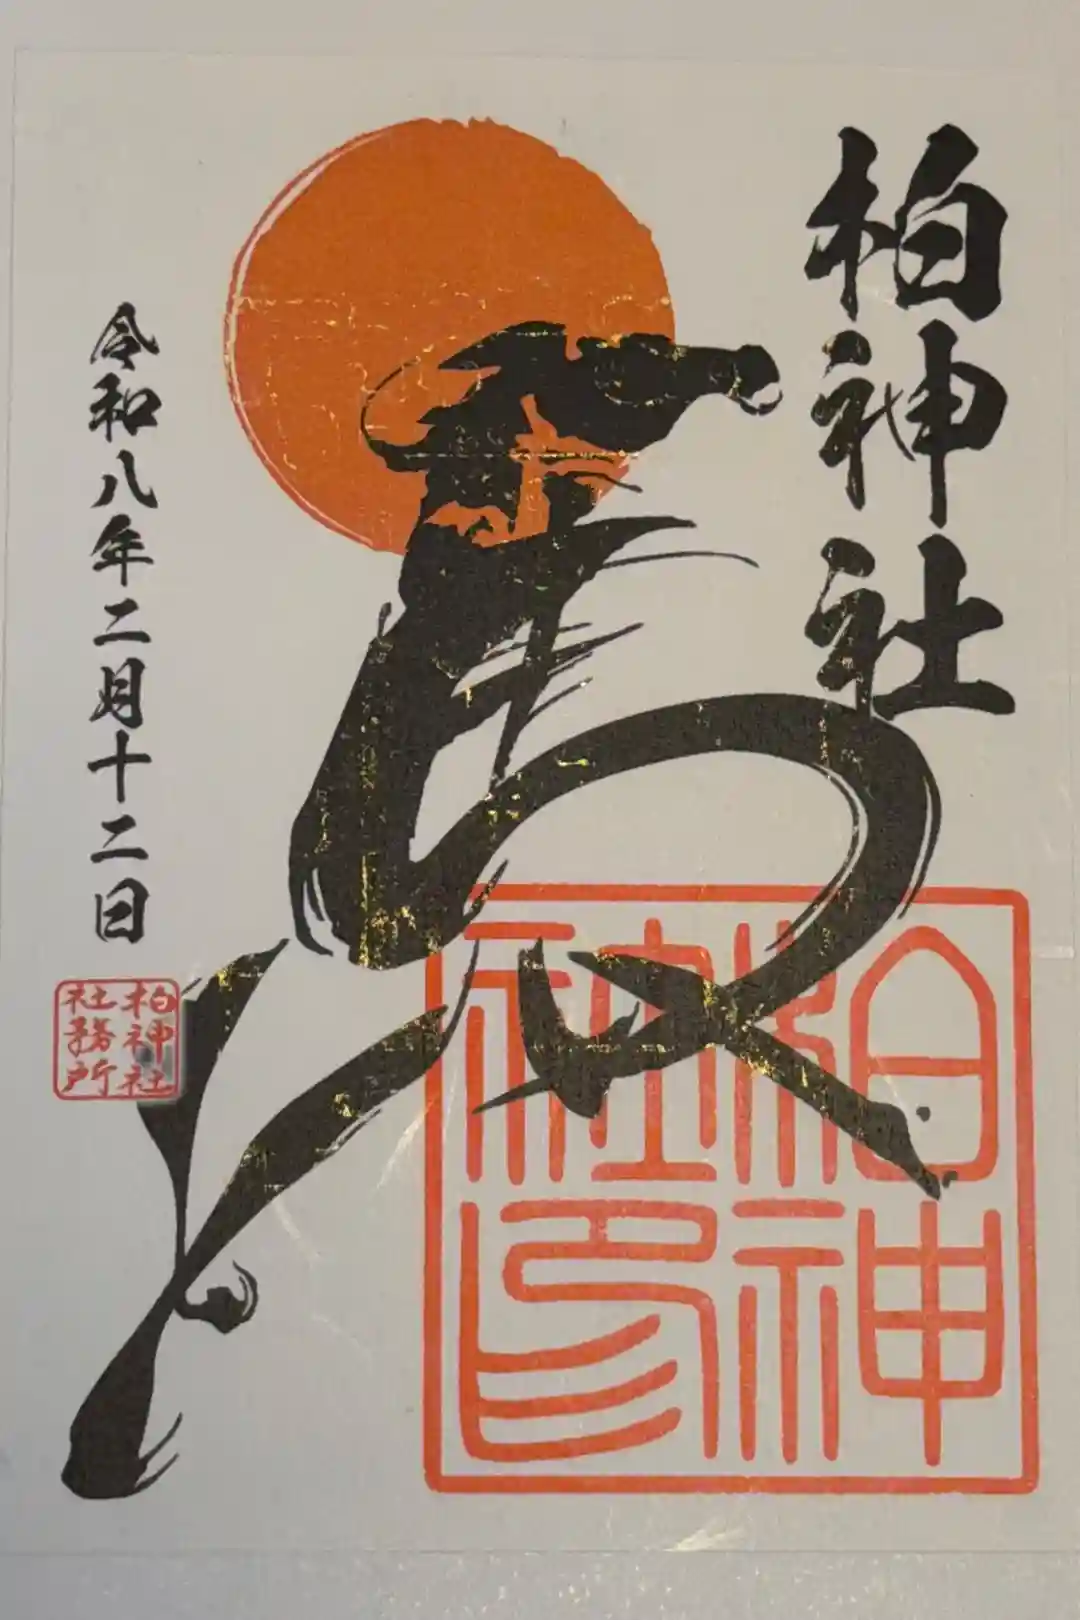 柏神社
令和八年二月十二日
柏神社
社務所
柏神
社印